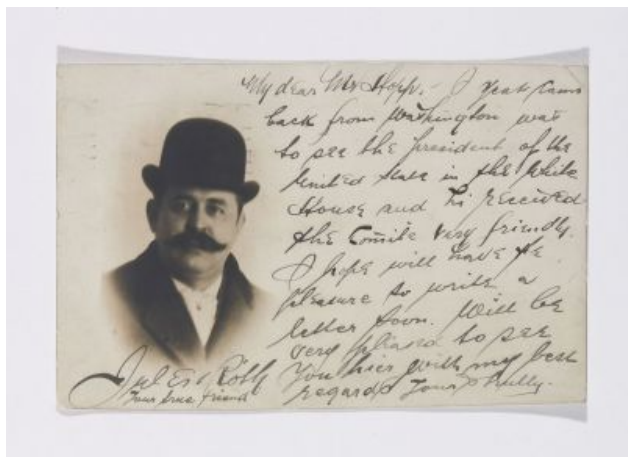 My dear Mr Hopp. - I yeat came
back from Washington was
to see the president of the
United State in the White
House and hi received
the Comite very friendly.
I hope will have the
pleasure to write a
letter soon. Will be
very pleased to see
You hier with my best
regards Yours trully.
Jules Roth
Your true friend